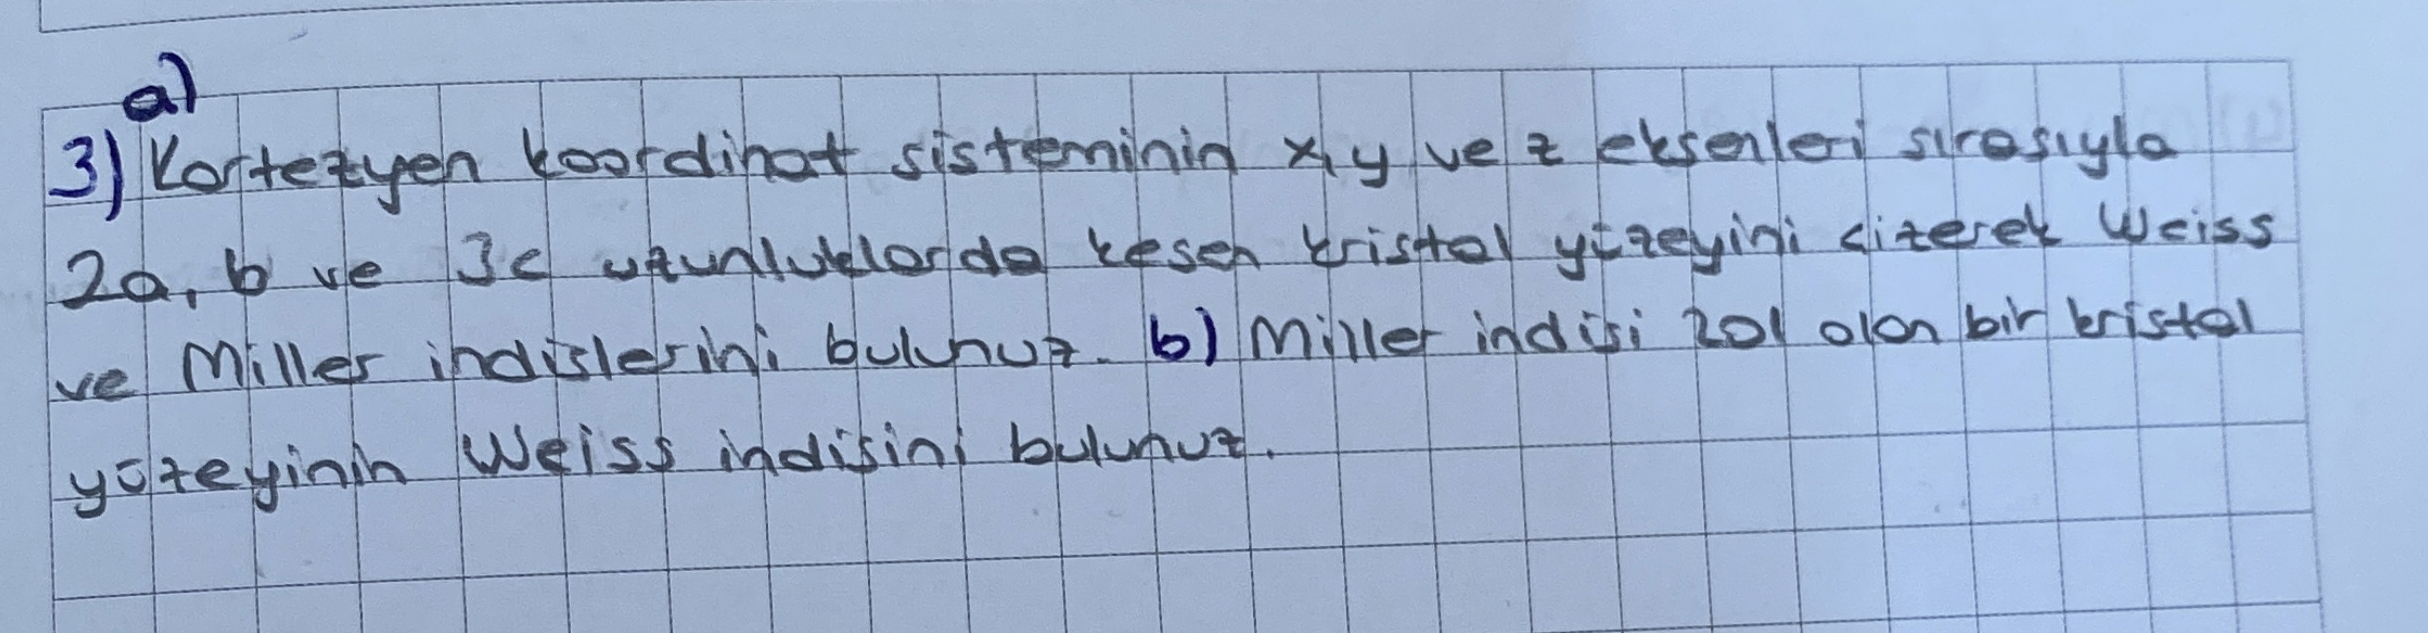 a)
3) Kartezyen koordinat sisteminin x, y ve z eksenleri sırasıyla
2a, b ve 3c uzunluklarda kesen kristal yüzeyini çizerek Weiss
ve Miller indislerini bulunuz. b) Miller indisi 201 olan bir kristal
yüzeyinin Weiss indisini bulunuz.